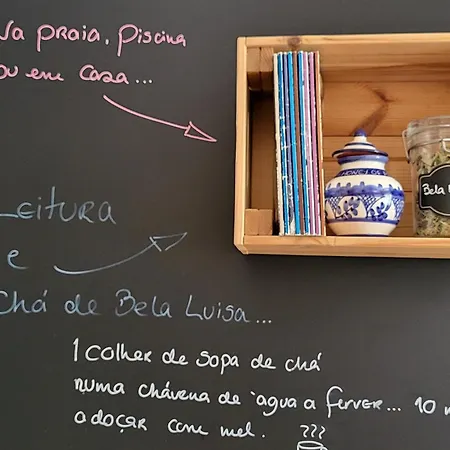 Na praia, piscina
ou em casa...
Leitura
e
Chá de Bela Luisa...
1 colher de sopa de chá
numa chávena de água a ferver... 10
adoçar com mel.
???
Bela